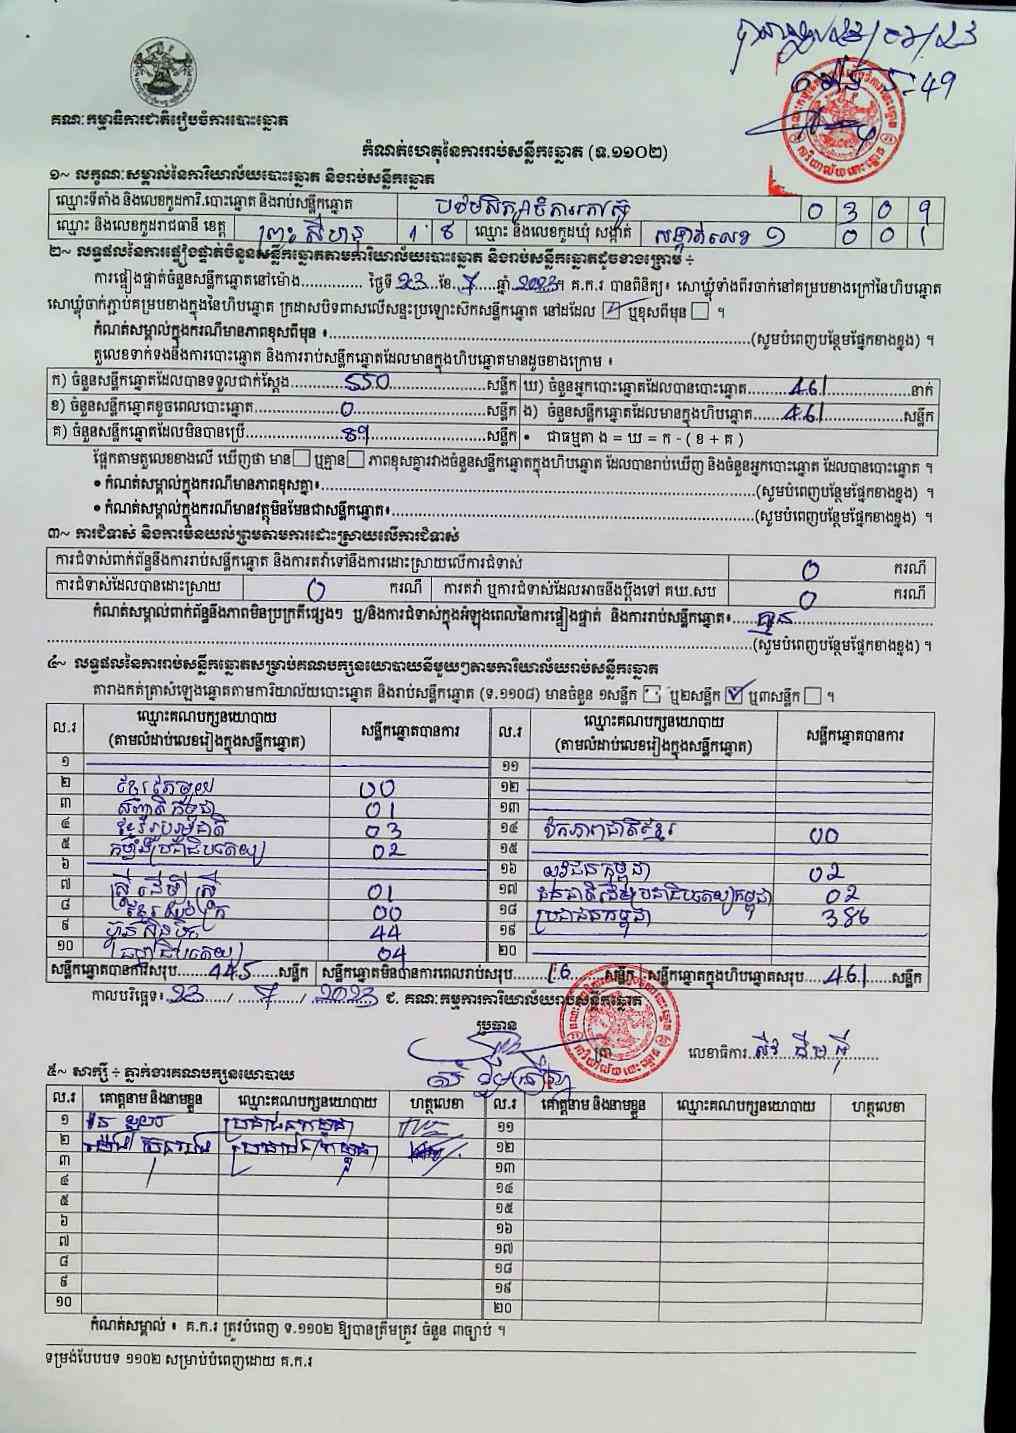 ២៣/០៦/២៣
គណៈកម្មាធិការជាតិរៀបចំការបោះឆ្នោត
កំណត់ហេតុនៃការរាប់សន្លឹកឆ្នោត (ទ.១១០២)
១~ លក្ខណៈសម្គាល់នៃការិយាល័យបោះឆ្នោត និងរាប់សន្លឹកឆ្នោត
ឈ្មោះទីតាំង និងលេខកូដការិ.បោះឆ្នោត និងរាប់សន្លឹកឆ្នោត 0 3 0 9
ឈ្មោះ និងលេខកូដរាជធានី ខេត្ត ព្រះសីហនុ 1 8 ឈ្មោះ និងលេខកូដឃុំ សង្កាត់ សង្កាត់លេខ ១ 0 0 1
២~ លទ្ធផលនៃការផ្ទៀងផ្ទាត់ចំនួនសន្លឹកឆ្នោតតាមការិយាល័យបោះឆ្នោត និងរាប់សន្លឹកឆ្នោតដូចខាងក្រោម ÷
ការផ្ទៀងផ្ទាត់ចំនួនសន្លឹកឆ្នោតនៅម៉ោង.............. ថ្ងៃទី 23 ខែ 7 ឆ្នាំ 2023។ គ.ក.រ បានពិនិត្យ៖ សោឃ្លុំទាំងពីរចាក់នៅគម្របខាងក្រៅនៃហិបឆ្នោត
សោឃ្លុំចាក់ភ្ជាប់គម្របខាងក្នុងនៃហិបឆ្នោត ក្រដាសបិទពាសលើសន្ទះប្រឡោះស៊កសន្លឹកឆ្នោត នៅដដែល ☑ ឬខុសពីមុន ☐ ។
កំណត់សម្គាល់ក្នុងករណីមានភាពខុសពីមុន ៖..............(សូមបំពេញបន្ថែមផ្នែកខាងខ្នង) ។
តួលេខទាក់ទងនឹងការបោះឆ្នោត និងការរាប់សន្លឹកឆ្នោតដែលមានក្នុងហិបឆ្នោតមានដូចខាងក្រោម ៖
ក) ចំនួនសន្លឹកឆ្នោតដែលបានទទួលជាក់ស្តែង 550 សន្លឹក ឃ) ចំនួនអ្នកបោះឆ្នោតដែលបានបោះឆ្នោត 461 នាក់
ខ) ចំនួនសន្លឹកឆ្នោតខូចពេលបោះឆ្នោត 0 សន្លឹក ង) ចំនួនសន្លឹកឆ្នោតដែលមានក្នុងហិបឆ្នោត 461 សន្លឹក
គ) ចំនួនសន្លឹកឆ្នោតដែលមិនបានប្រើ 89 សន្លឹក • ជាធម្មតា ង = ឃ = ក - ( ខ + គ )
ផ្អែកតាមតួលេខខាងលើ ឃើញថា មាន ☐ ឬគ្មាន ☐ ភាពខុសគ្នារវាងចំនួនសន្លឹកឆ្នោតក្នុងហិបឆ្នោត ដែលបានរាប់ឃើញ និងចំនួនអ្នកបោះឆ្នោត ដែលបានបោះឆ្នោត ។
• កំណត់សម្គាល់ក្នុងករណីមានភាពខុសគ្នា៖..............(សូមបំពេញបន្ថែមផ្នែកខាងខ្នង) ។
• កំណត់សម្គាល់ក្នុងករណីមានវត្ថុមិនមែនជាសន្លឹកឆ្នោត៖..............(សូមបំពេញបន្ថែមផ្នែកខាងខ្នង) ។
៣~ ការជំទាស់ និងការមិនយល់ព្រមតាមការដោះស្រាយលើការជំទាស់
ការជំទាស់ពាក់ព័ន្ធនឹងការរាប់សន្លឹកឆ្នោត និងការតវ៉ាទៅនឹងការដោះស្រាយលើការជំទាស់ 0 ករណី
ការជំទាស់ដែលបានដោះស្រាយ 0 ករណី ការតវ៉ា ឬការជំទាស់ដែលអាចនឹងប្តឹងទៅ គឃ.សប 0 ករណី
កំណត់សម្គាល់ពាក់ព័ន្ធនឹងភាពមិនប្រក្រតីផ្សេងៗ ឬ/និងការជំទាស់ក្នុងអំឡុងពេលនៃការផ្ទៀងផ្ទាត់ និងការរាប់សន្លឹកឆ្នោត៖ គ្មាន
..............(សូមបំពេញបន្ថែមផ្នែកខាងខ្នង) ។
៤~ លទ្ធផលនៃការរាប់សន្លឹកឆ្នោតសម្រាប់គណបក្សនយោបាយនីមួយៗតាមការិយាល័យរាប់សន្លឹកឆ្នោត
តារាងកត់ត្រាសំឡេងឆ្នោតតាមការិយាល័យបោះឆ្នោត និងរាប់សន្លឹកឆ្នោត (ទ.១១០៨) មានចំនួន ១សន្លឹក ☐ ឬ២សន្លឹក ☑ ឬ៣សន្លឹក ☐ ។
ល.រ ឈ្មោះគណបក្សនយោបាយ (តាមលំដាប់លេខរៀងក្នុងសន្លឹកឆ្នោត) សន្លឹកឆ្នោតបានការ ល.រ ឈ្មោះគណបក្សនយោបាយ (តាមលំដាប់លេខរៀងក្នុងសន្លឹកឆ្នោត) សន្លឹកឆ្នោតបានការ
១ ១១
២ ខ្មែរតែមួយ 00 ១២
៣ សញ្ជាតិកម្ពុជា 01 ១៣
៤ ខ្មែររួបរួមជាតិ 03 ១៤ ឯកភាពជាតិខ្មែរ 00
៥ កម្លាំងប្រជាធិបតេយ្យ 02 ១៥
៦ ១៦ យុវជនកម្ពុជា 02
៧ ស្ត្រីដើម្បីស្ត្រី 01 ១៧ ជនជាតិដើមប្រជាធិបតេយ្យកម្ពុជា 02
៨ ខ្មែរឈប់ក្រ 00 ១៨ ប្រជាជនកម្ពុជា 386
៩ ហ៊្វុនស៊ិនប៉ិច 44 ១៩
១០ ធម្មាធិបតេយ្យ 04 ២០
សន្លឹកឆ្នោតបានការសរុប 445 សន្លឹក សន្លឹកឆ្នោតមិនបានការពេលរាប់សរុប 16 សន្លឹក សន្លឹកឆ្នោតក្នុងហិបឆ្នោតសរុប 461 សន្លឹក
កាលបរិច្ឆេទ៖ 23 / 7 / 2023 ជ. គណៈកម្មការការិយាល័យរាប់សន្លឹកឆ្នោត
ប្រធាន
លេខាធិការ
៥~ សាក្សី ÷ ភ្នាក់ងារគណបក្សនយោបាយ
ល.រ គោត្តនាម និងនាមខ្លួន ឈ្មោះគណបក្សនយោបាយ ហត្ថលេខា ល.រ គោត្តនាម និងនាមខ្លួន ឈ្មោះគណបក្សនយោបាយ ហត្ថលេខា
១ ប្រជាជនកម្ពុជា ១១
២ ប្រជាជនកម្ពុជា ១២
៣ ១៣
៤ ១៤
៥ ១៥
៦ ១៦
៧ ១៧
៨ ១៨
៩ ១៩
១០ ២០
កំណត់សម្គាល់ ៖ គ.ក.រ ត្រូវបំពេញ ទ.១១០២ ឱ្យបានត្រឹមត្រូវ ចំនួន ៣ច្បាប់ ។
ទម្រង់បែបបទ ១១០២ សម្រាប់បំពេញដោយ គ.ក.រ